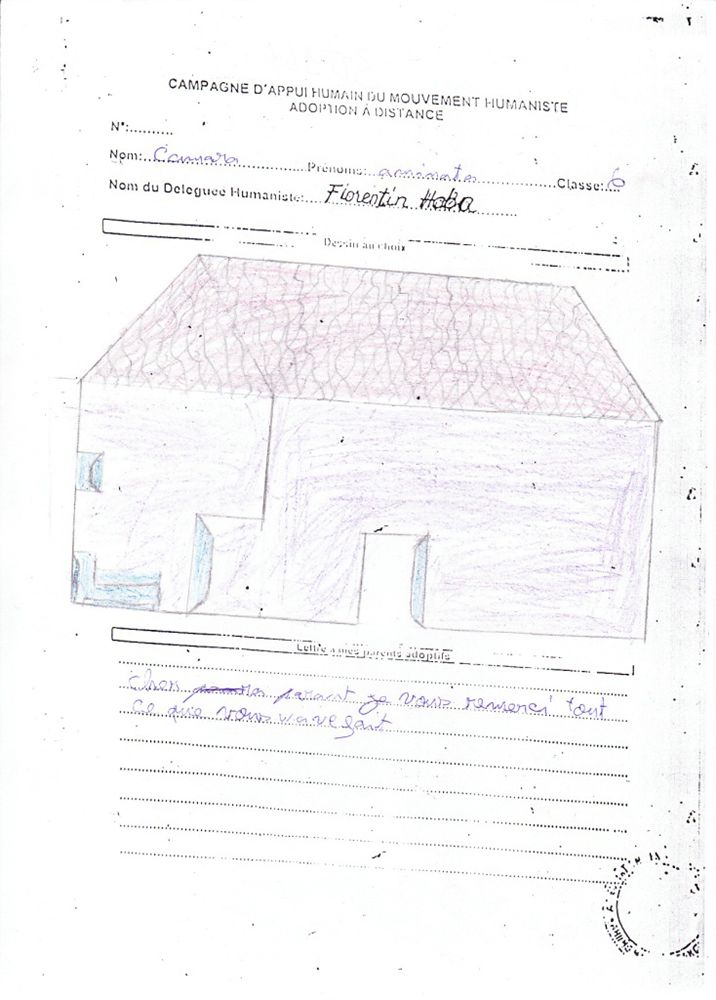 CAMPAGNE D'APPUI HUMAIN DU MOUVEMENT HUMANISTE
ADOPTION À DISTANCE
N°:..........
Nom: Camara Prénoms: aminata Classe: 6
Nom du Deleguée Humaniste: Florentin Haba
Dessin au choix
Lettre à mes parents adoptifs
cher parant je vous remerci tout
ce que vous wave fait